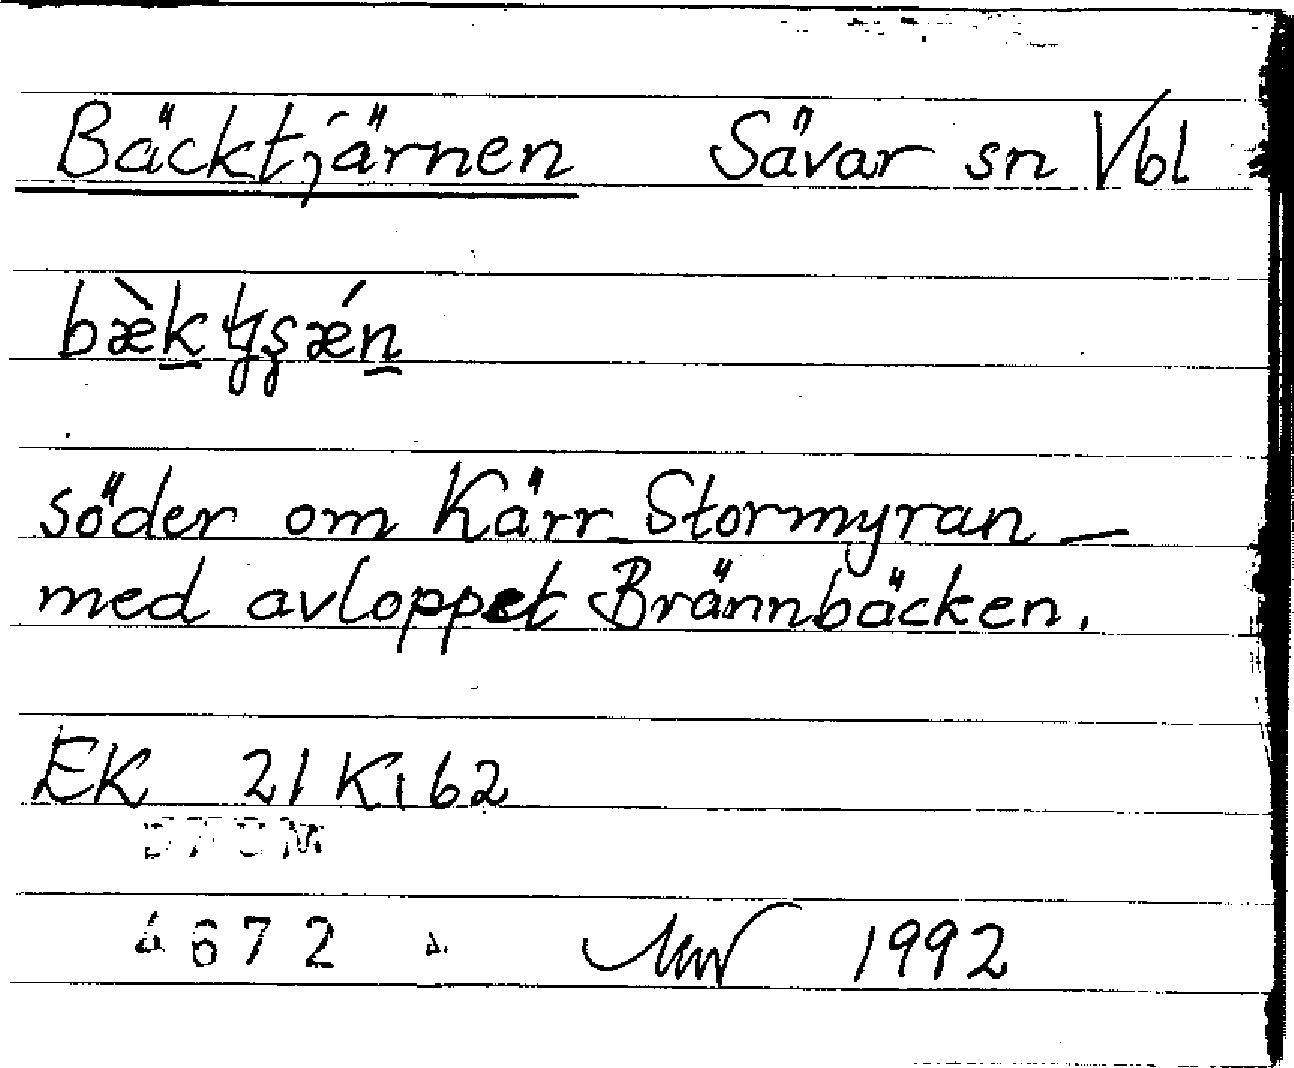 Bäcktjärnen Sävar sn Vbl
söder om Kärr Stormyran —
med avloppet Brännbäcken.
EK 21 K 1 62
DAUM
4672 1992